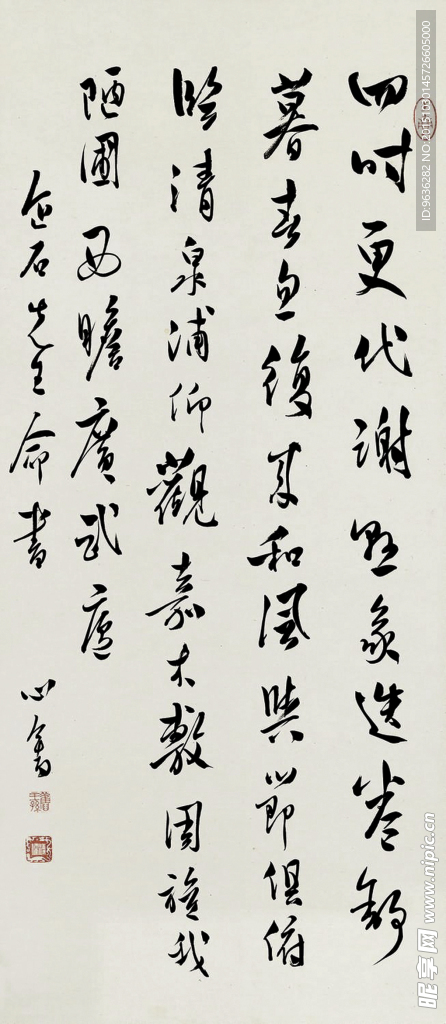 四時更代謝懸象迭卷舒
暮春忽復来和風與節俱俯
臨清泉浦仰觀嘉木敷周旋我
陋圃西瞻廣武廬
石先生命書
心畬
ID:9636282 NO:20151030145726605000
昵享网 www.nipic.cn